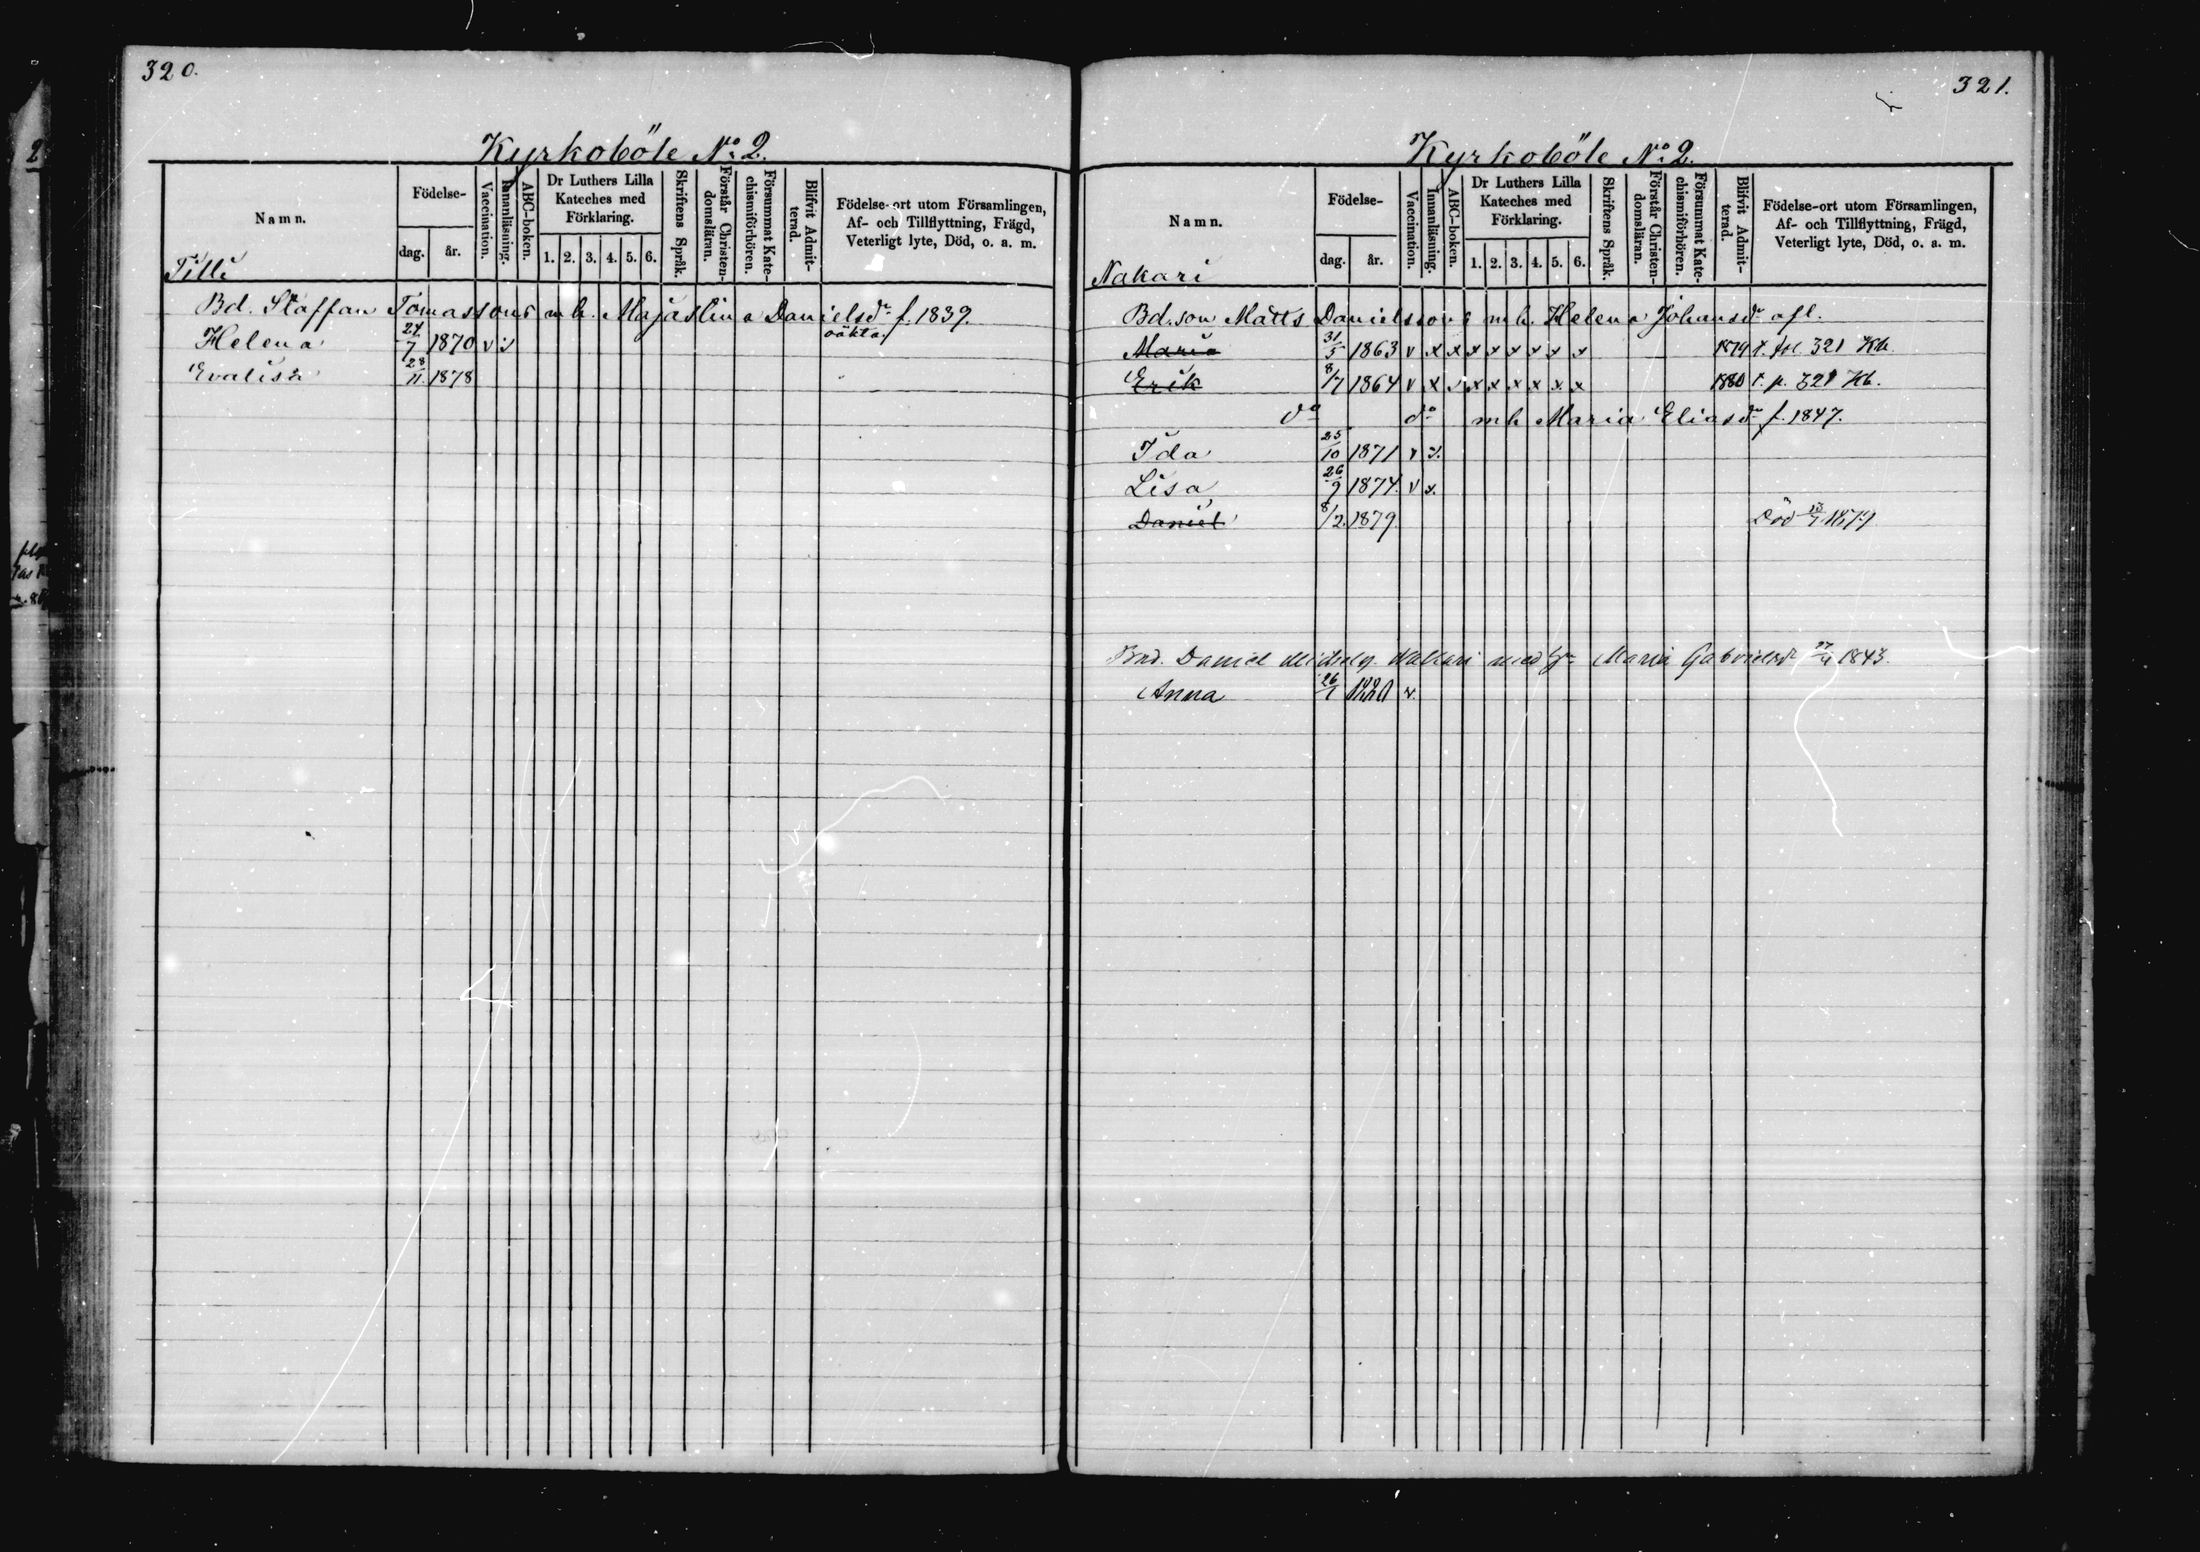 320.
Kyrkoböle No 2.
Namn.
Födelse-
dag.
år.
Vaccination.
Innanläsning.
ABC-boken.
Dr Luthers Lilla
Kateches med
Förklaring.
1. 2. 3. 4. 5. 6.
Skriftens Språk.
Förstår Christen-
domsläran.
Försummat Kate-
chismiförhören.
Blifvit Admit-
terad.
Födelse-ort utom Församlingen,
Af- och Tillflyttning, Frägd,
Veterligt lyte, Död, o. a. m.
Tilli
Bd. Staffan Tomassons m h. Majastina Danielsdr f. 1839.
Helena 24/7 1870 v oäkta
Evalisa 28/11. 1878
321.
Kyrkoböle No 2.
Namn.
Födelse-
dag.
år.
Vaccination.
Innanläsning.
ABC-boken.
Dr Luthers Lilla
Kateches med
Förklaring.
1. 2. 3. 4. 5. 6.
Skriftens Språk.
Förstår Christen-
domsläran.
Försummat Kate-
chismiförhören.
Blifvit Admit-
terad.
Födelse-ort utom Församlingen,
Af- och Tillflyttning, Frägd,
Veterligt lyte, Död, o. a. m.
Nakari
Bd. son Matts Danielssons m h. Helena Johansdr afl.
Maria 31/5 1863 v x x x x x x x x 1879 t. fol. 321 Kb.
Erik 8/7 1864 v x v x x x x x x 1880 t. p. 321 Kb.
do do m h Maria Eliasdr f. 1847.
Ida 25/10 1871 v x.
Lisa 26/9 1874. v x.
Daniel 8/2. 1879 Död 1879
Bnd. Daniel Nakari med Maria Gabrielsdr 1843.
Anna 26/1 v.